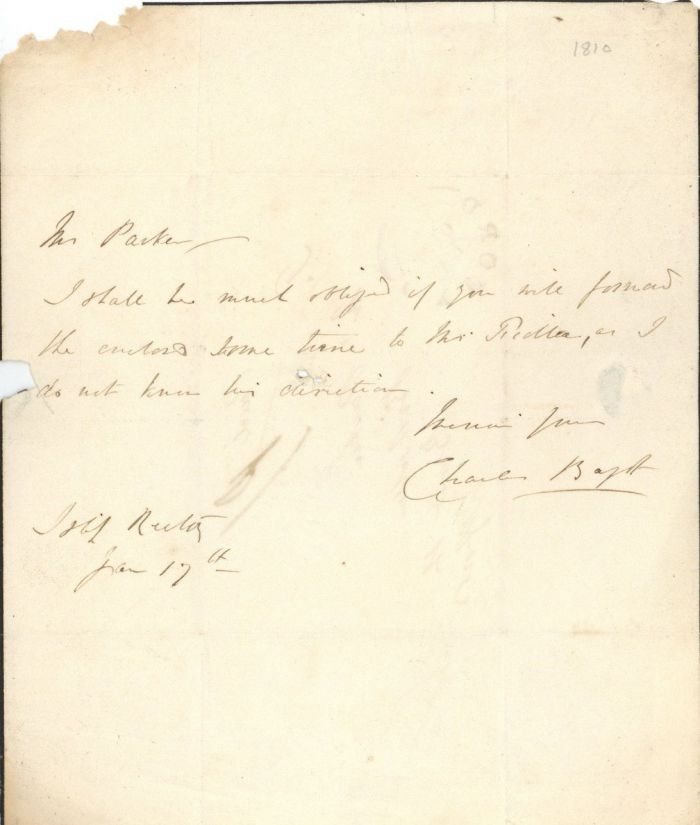 1810
Mr Parker
I shall be much obliged if you will forward
the enclosed some time to Mr Fidler, as I
do not know his direction.
I remain yours
Charles
Islip Rectory
Jan 17th